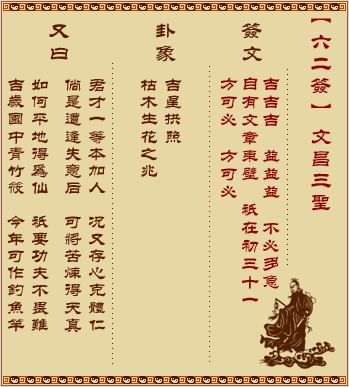 【六二簽】 文昌三聖
簽文
吉吉吉 益益益 不必多意
自有文章東壁 祇在初三十一
方可必 方可必
卦象
吉星拱照
枯木生花之兆
又曰
君才一等本加人 況又存心克體仁
倘是遭逢失意后 可將苦煉得天真
如何平地得爲仙 祇要功夫不畏難
吉歲園中青竹筱 今年可作釣魚竿